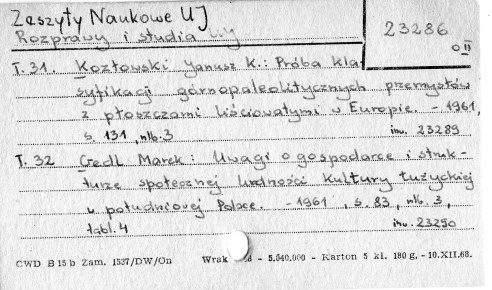 Zeszyty Naukowe UJ
Rozprawy i studia UJ
23286
O II
T. 31. Kozłowski Janusz K.: Próba klas
syfikacji górnopaleolitycznych przemysłów
z płoszczami liściowatymi w Europie. - 1961,
s. 131, nlb. 3
inw. 23289
T. 32 Gedl Marek: Uwagi o gospodarce i struk-
turze społecznej ludności kultury łużyckiej
w południowej Polsce. - 1961, s. 83, nlb. 3,
tabl. 4
inw. 23250
CWD B 15 b Zam. 1537/DW/On Wrak - 5.040.000 - Karton 5 kl. 180 g, - 10.XII.68.